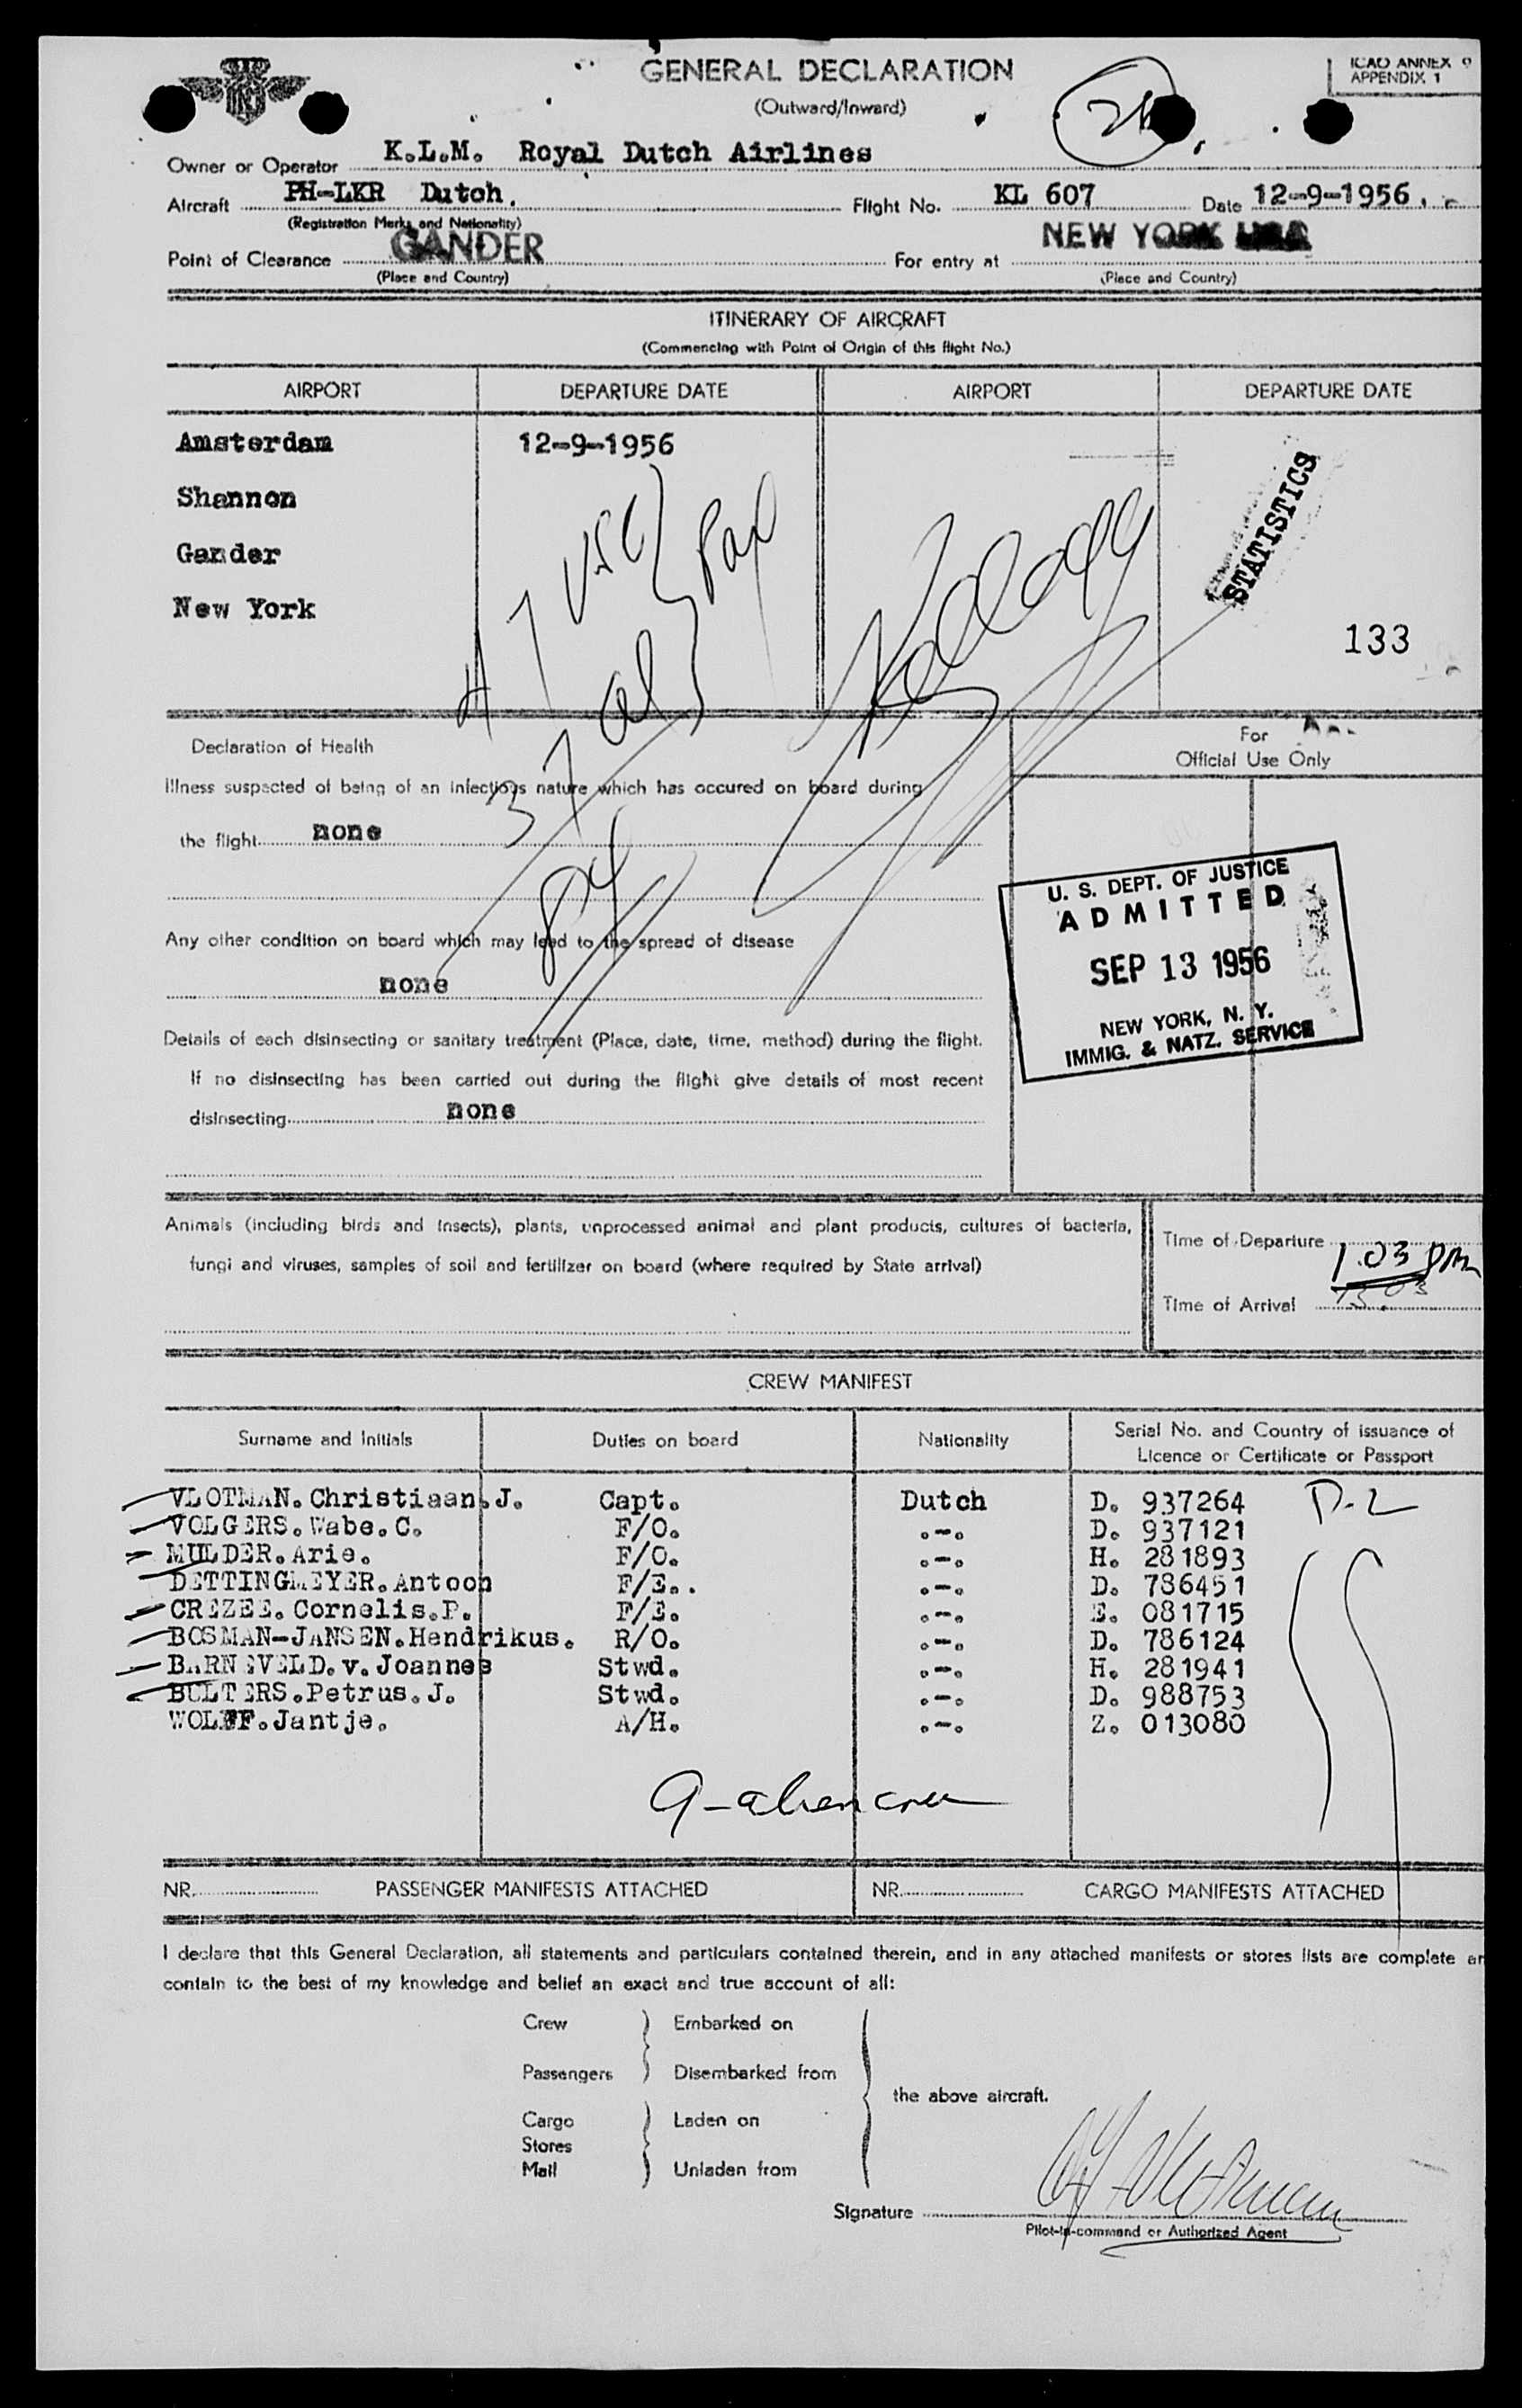 GENERAL DECLARATION
(Outward/Inward)
ICAO ANNEX 9
APPENDIX 1
Owner or Operator K.L.M. Royal Dutch Airlines
Aircraft PH-LKR Dutch. Flight No. KL 607 Date 12-9-1956.
(Registration Marks and Nationality)
Point of Clearance GANDER For entry at NEW YORK
(Place and Country) (Place and Country)
ITINERARY OF AIRCRAFT
(Commencing with Point of Origin of this flight No.)
AIRPORT DEPARTURE DATE AIRPORT DEPARTURE DATE
Amsterdam 12-9-1956
Shannon
Gander
New York
STATISTICS
133
47 USC
37 al
Pax
84
Declaration of Health
For
Official Use Only
Illness suspected of being of an infectious nature which has occured on board during
the flight none
Any other condition on board which may lead to the spread of disease
none
Details of each disinsecting or sanitary treatment (Place, date, time, method) during the flight.
If no disinsecting has been carried out during the flight give details of most recent
disinsecting none
U. S. DEPT. OF JUSTICE
ADMITTED
SEP 13 1956
NEW YORK, N. Y.
IMMIG. & NATZ. SERVICE
Animals (including birds and insects), plants, unprocessed animal and plant products, cultures of bacteria,
fungi and viruses, samples of soil and fertilizer on board (where required by State arrival)
Time of Departure
1.03 pm
Time of Arrival 1303
CREW MANIFEST
Surname and Initials Duties on board Nationality Serial No. and Country of issuance of
Licence or Certificate or Passport
VLOTMAN.Christiaan.J. Capt. Dutch D. 937264 D-2
VOLGERS.Wabe.C. F/O. .-. D. 937121
MULDER.Arie. F/O. .-. H. 281893
DETTINGMEYER.Antoon F/E.. .-. D. 786451
CREZEE.Cornelis.P. F/E. .-. E. 081715
BOSMAN-JANSEN.Hendrikus. R/O. .-. D. 786124
BARNEVELD.v.Joannes Stwd. .-. H. 281941
BULTERS.Petrus.J. Stwd. .-. D. 988753
WOLFF.Jantje. A/H. .-. Z. 013080
9-alien crew
NR. PASSENGER MANIFESTS ATTACHED NR. CARGO MANIFESTS ATTACHED
I declare that this General Declaration, all statements and particulars contained therein, and in any attached manifests or stores lists are complete an
contain to the best of my knowledge and belief an exact and true account of all:
Crew Embarked on
Passengers Disembarked from
the above aircraft.
Cargo Laden on
Stores
Mail Unladen from
Signature
Pilot-in-command or Authorized Agent